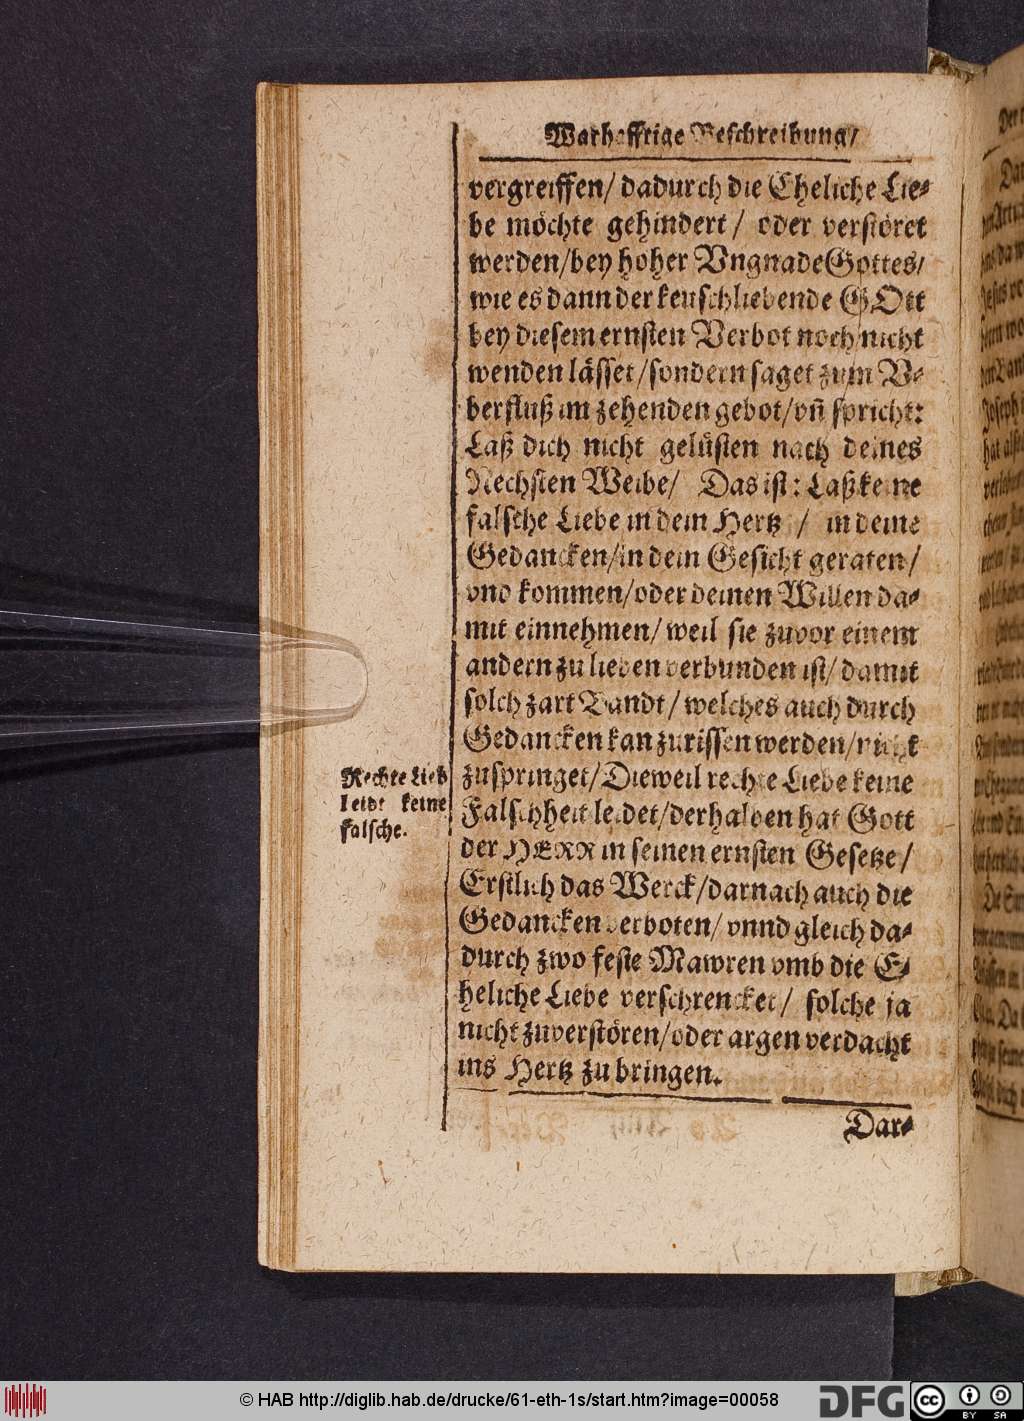 Warhafftige Beschreibung/
vergreiffen/ dadurch die Eheliche Lie-
be möchte gehindert/ oder verstöret
werden/bey hoher VngnadeGottes/
wie es dann der keuschliebende GOtt
bey diesem ernsten Verbot noch nicht
wenden lässet/sondern saget zum V-
berfluß im zehenden gebot/vñ spricht:
Laß dich nicht gelüsten nach deines
Nechsten Weibe/ Das ist: Laß keine
falsche Liebe in dein Hertz / in deine
Gedancken/in dein Gesicht geraten/
vnd kommen/oder deinen Willen da-
mit einnehmen/ weil sie zuvor einem
andern zu lieben verbunden ist/ damit
solch zart Bandt/ welches auch durch
Gedancken kan zurissen werden/nicht
zuspringet/Dieweil rechte Liebe keine
Rechte Lieb
leidt keine
falsche.
Falschheit leidet/derhalben hat Gott
der HERR in seinen ernsten Gesetze/
Erstlich das Werck/darnach auch die
Gedancken verboten/ vnnd gleich da-
durch zwo feste Mawren vmb die E-
heliche Liebe verschrencket/ solche ja
nicht zuverstören/oder argen verdacht
ins Hertz zu bringen.
Dar-
© HAB http://diglib.hab.de/drucke/61-eth-1s/start.htm?image=00058
DFG
cc
BY SA